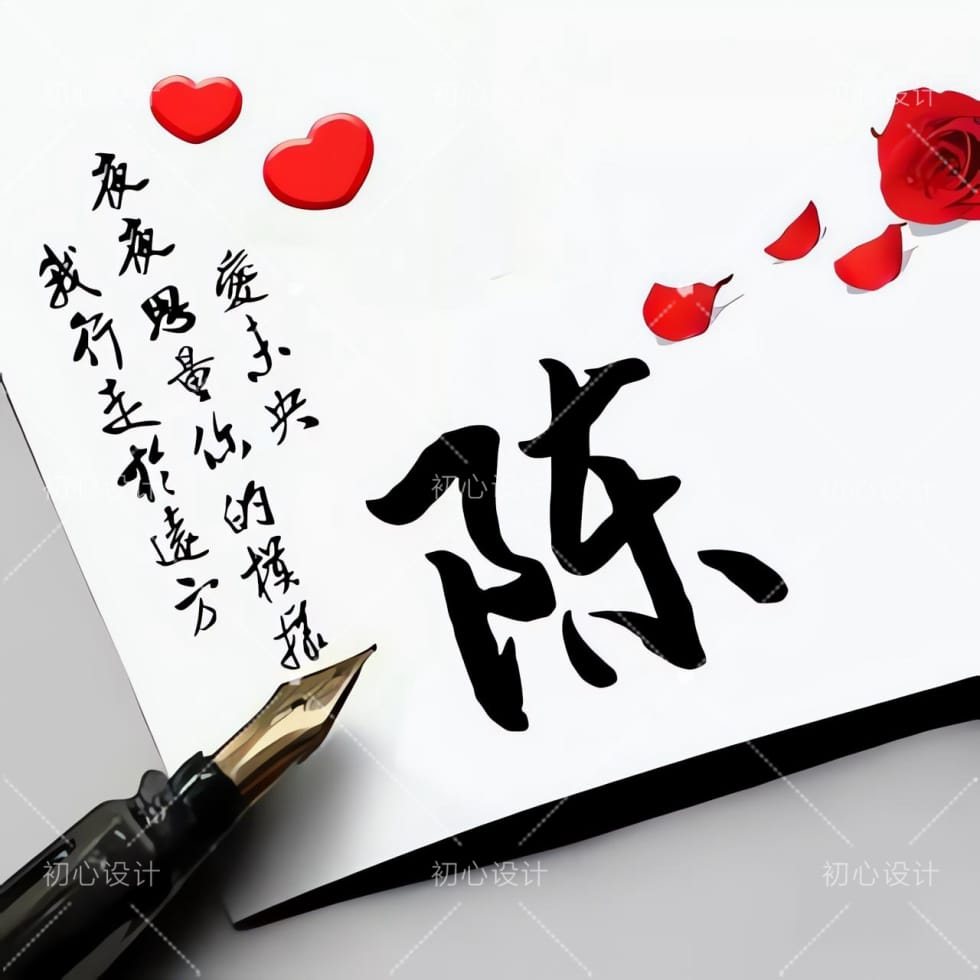 愛未央
夜夜思量你的模樣
我行走於遠方
陈
初心设计
初心设计
初心设计
初心设计
初心设计
初心设计
初心设计
初心设计
初心设计